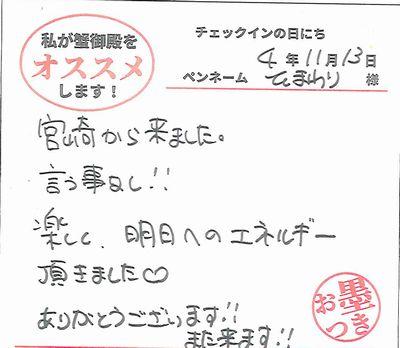 私が蟹御殿を
オススメ
します!
チェックインの日にち
4年11月13日
ペンネーム ひまわり 様
宮崎から来ました。
言う事なし!!
楽しく、明日へのエネルギー
頂きました♡
ありがとうございます!!
また来ます!!
お墨つき